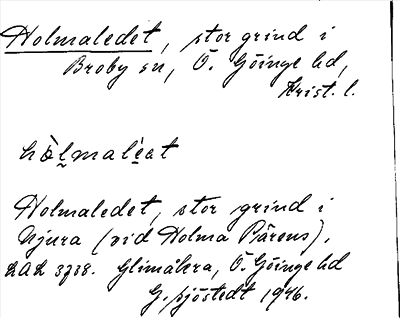 Holmaledet, stor grind i
Broby sn, Ö. Göinge hd,
Krist. l.
hòl̰malèat
Holmaledet, stor grind i
(vid Holma Pärens).
LAL 3738. Glimåkra, Ö. Göinge hd
G. Sjöstedt 1946.